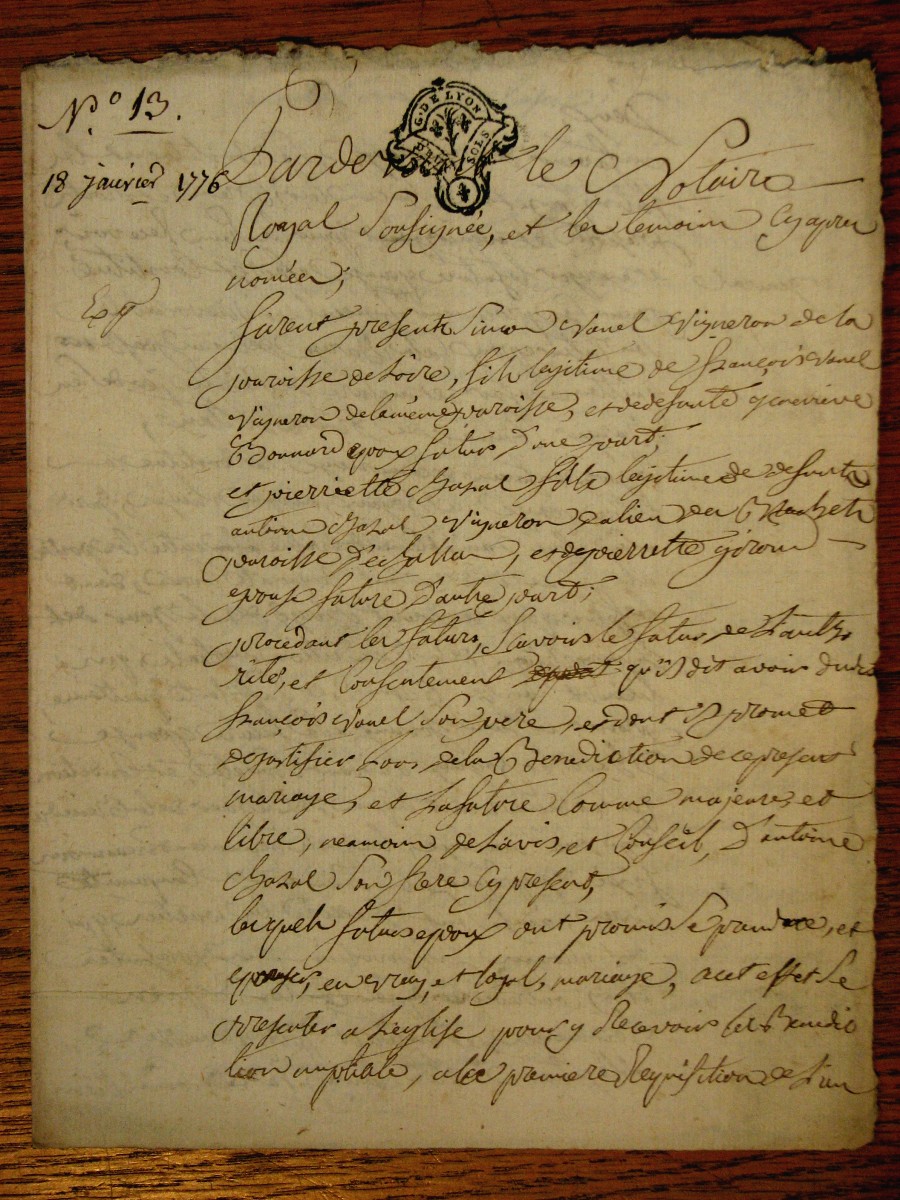 N.º 13.
18 janvier 1776
G. DE LYON
DEUX SOLS
Pardevant le Notaire
Royal Soussignée, et les temoins Cy apres
nomées,
Exp
furent presents Simon Vanel Vigneron de la
paroisse de Loire, fils legitime de françois Vanel
Vigneron de la meme paroisse, et de defunte genevieve
Bonnard epoux futur d'une part;
et pierrette Chazal fille legitime de defunt
antoine Chazal Vigneron du lieu des
paroisse d'echallas, et de pierrette giroud
epouse future d'autre part;
procedant les futurs, Scavoir le futur de L'autho
rité, et Consentement qu'il dit avoir dudit
françois Vanel Son pere, et dont il promet
de justifier Lors de la Benediction de ce present
mariage, et La future Comme majeure, et
libre, neamoins de L'avis, et Conseil, D'antoine
Chazal Son frere Cy present,
lesquels futurs epoux ont promis Se prendre, et
epouser, en vray, et legal, mariage, a cet effet Se
presenter a L'eglise pour y Recevoir la Benedic
tion nuptiale, a la premiere Requisition de L'un